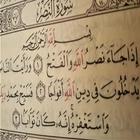 سورة النصر
إذا جاء نصر الله والفتح
يدخلون في دين الله أفواجا
واستغفره إنه كان توابا